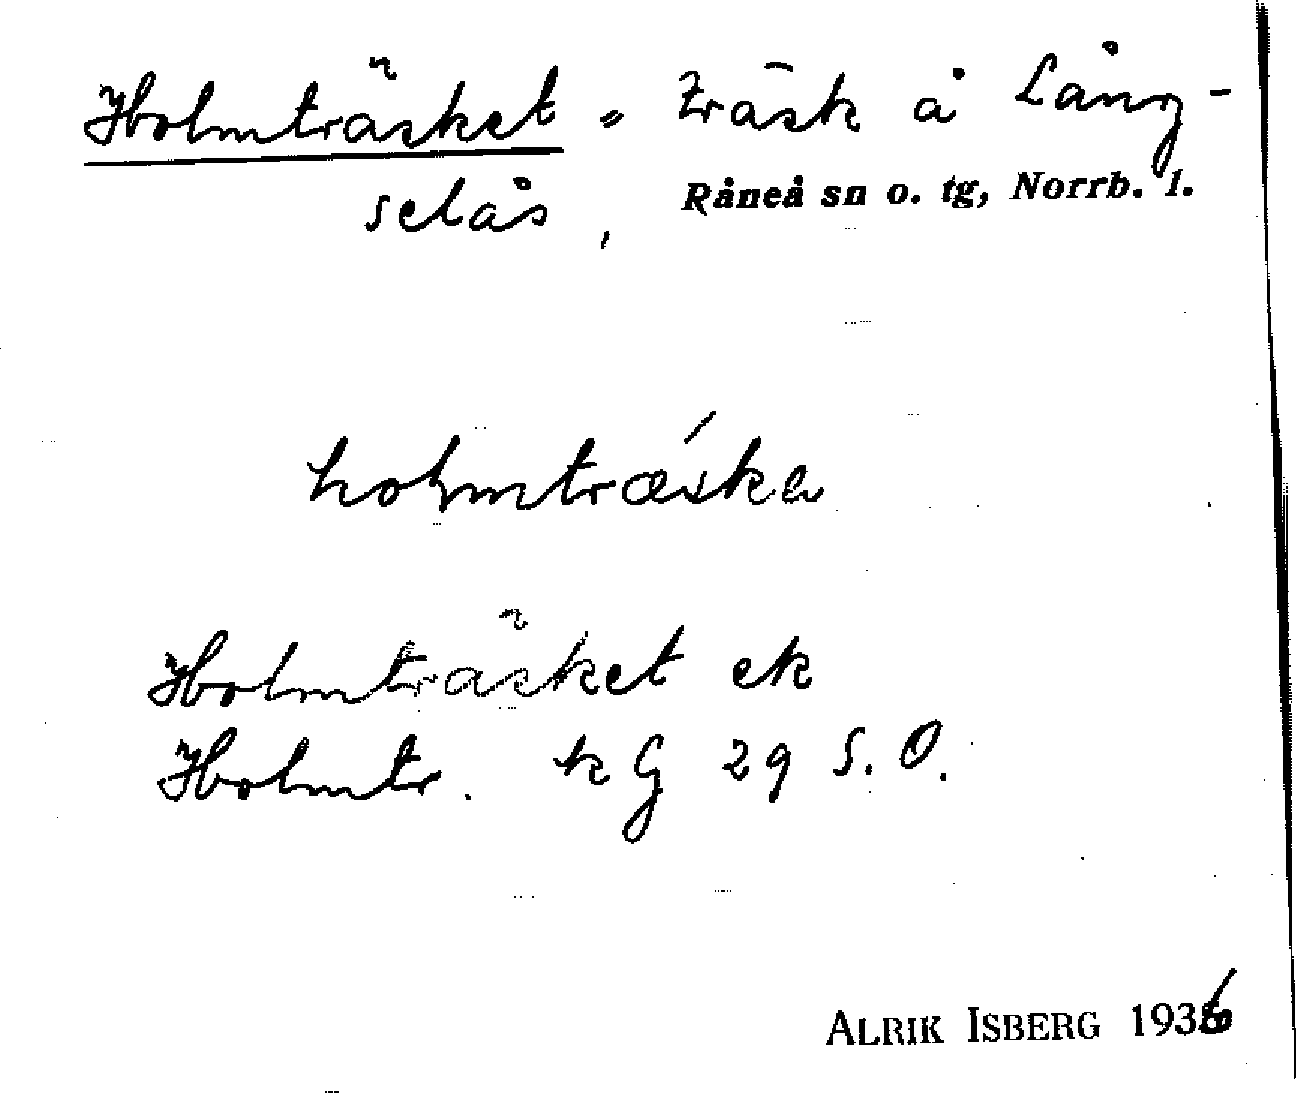 Holmträsket, Träsk å Lång-
selås, Råneå sn o. tg, Norrb. l.
holmtræska
Holmträsket ek
Holmtr. kG 29 S.O.
ALRIK ISBERG 1936